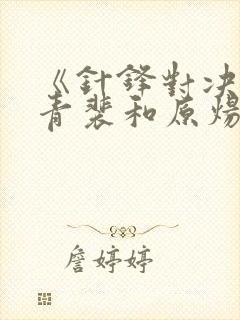 《針鋒對決
青裴和原煬
詹婷婷